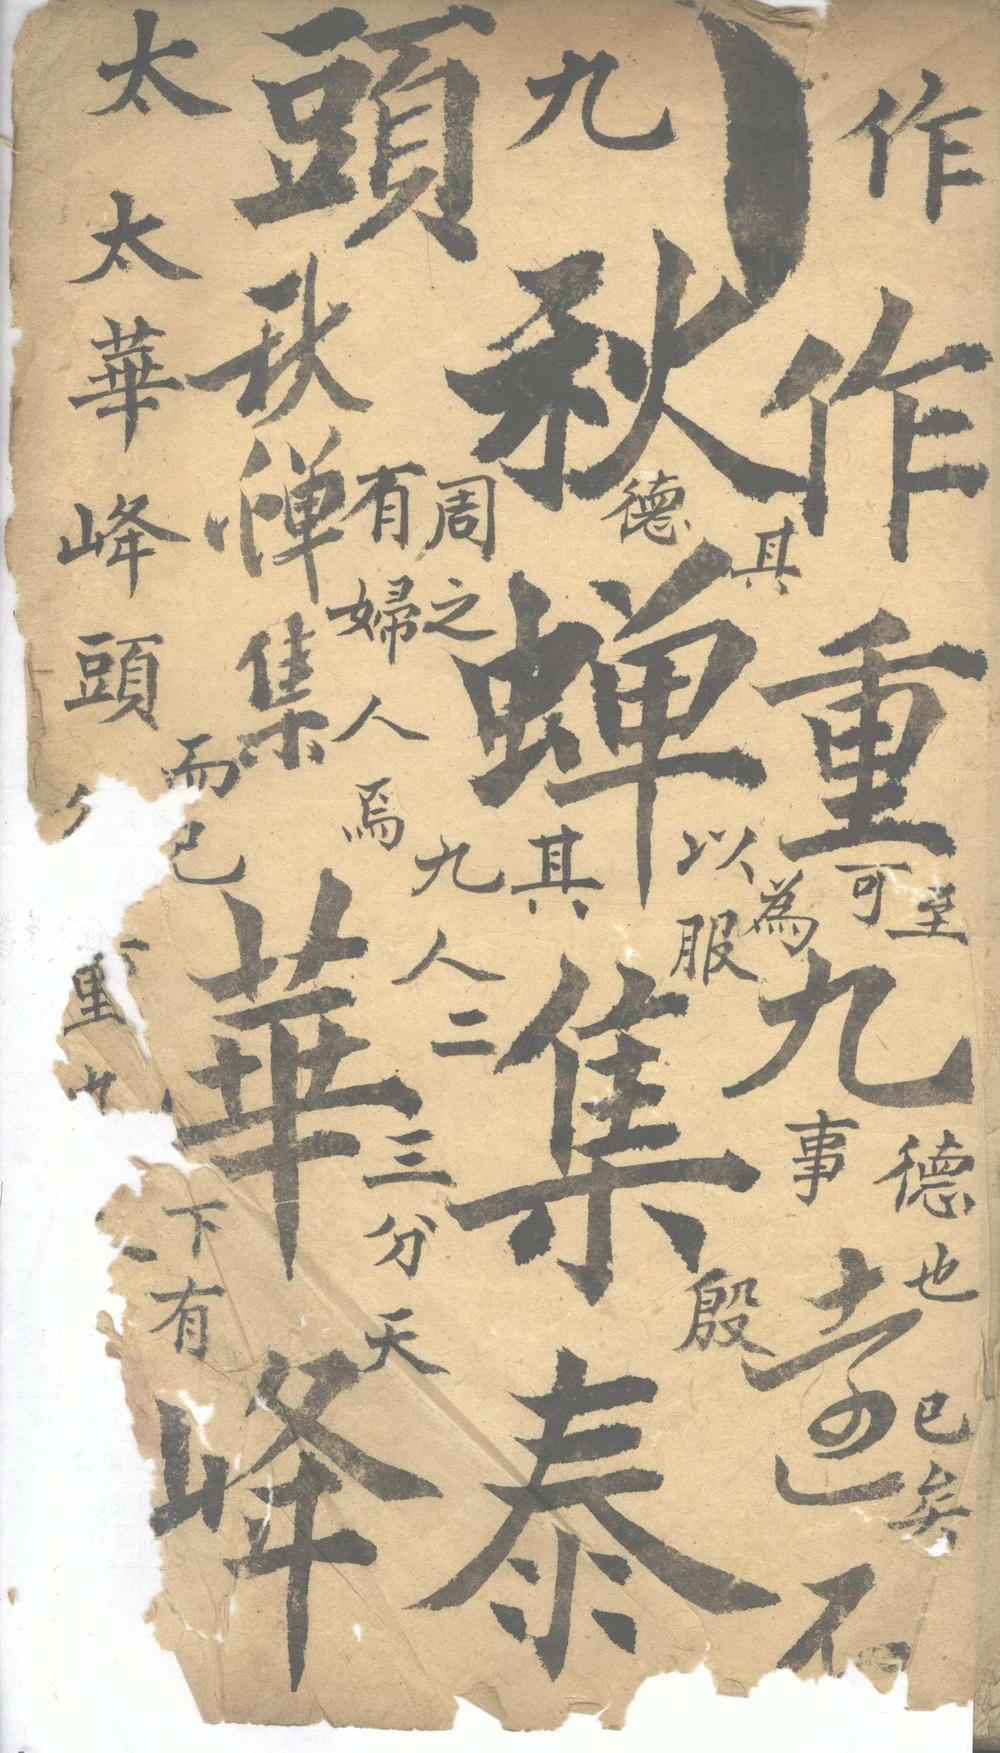 作作重九
不
至德也已矣
其可
為事
德以服殷
九秋蝉集泰
其
周之
九人二
有婦人焉
三分天
頭秋蝉集華峰
而已
下有
太太華峰頭
里九